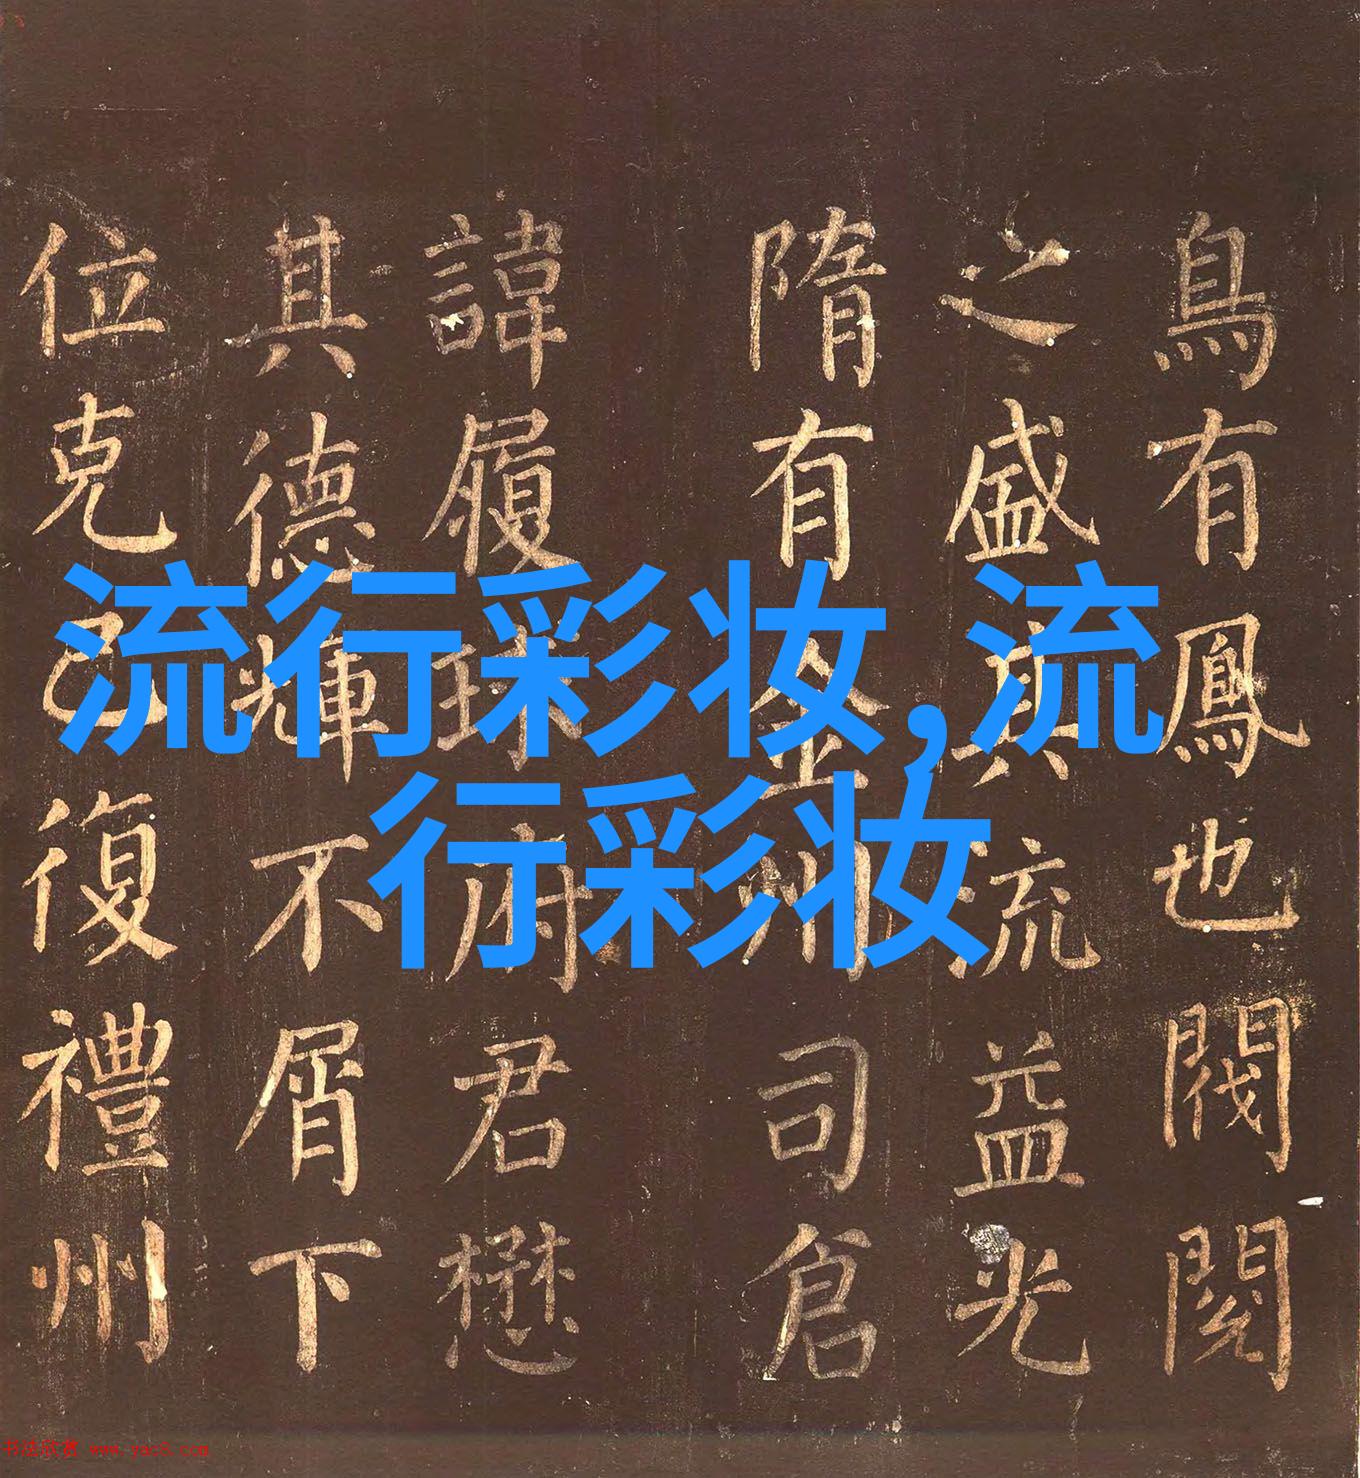 鳥有鳳也閥閱
之盛其流益光
隋有金州司倉
諱履球府君懋
其德輝不屑下
位克己復禮州
流行彩妆,流
行彩妆
书法欣赏 www.yac8.com